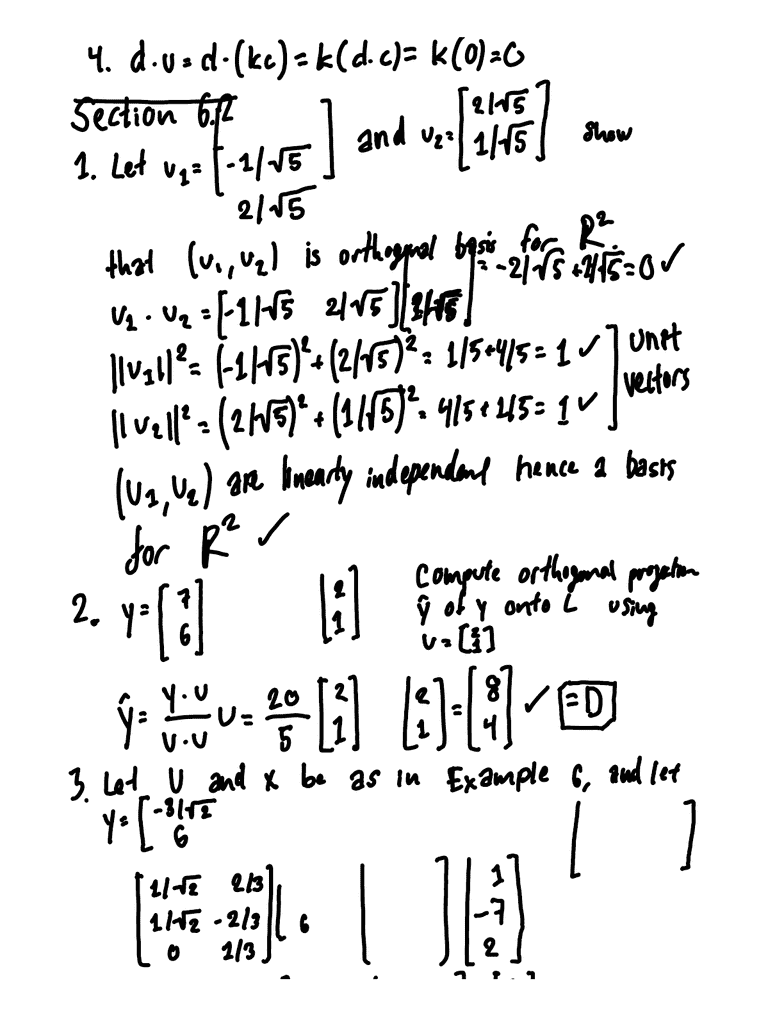 4. d·u=d·(kc)=k(d.c)=k(0)=0
Section 6.2
1. Let v₁=[-1/√5 2/√5] and v₂=[2/√5 1/√5] show
that (v₁,v₂) is orthogonal basis for R².
v₁·v₂=[-1/√5 2/√5][2/√5 1/√5]=-2/√5+2/√5=0✓
||v₁||²=(-1/√5)²+(2/√5)²=1/5+4/5=1✓] unit
||v₂||²=(2/√5)²+(1/√5)²=4/5+1/5=1✓] vectors
(U₁,U₂) are linearly independent hence a basis
for R² ✓
2. y=[7 6] [2 1] Compute orthogonal projection
ŷ of y onto L using
u=[2 1]
ŷ= y·u/v·u U= 20/5 [2 1] [2 1]=[8 4] ✓ =D
3. Let U and x be as in Example 6, and let
y=[-3/√2 6 [ ]
[1/√2 2/3 [ 6 [ ] [1
1/√2 -2/3 -7
0 1/3] 2]